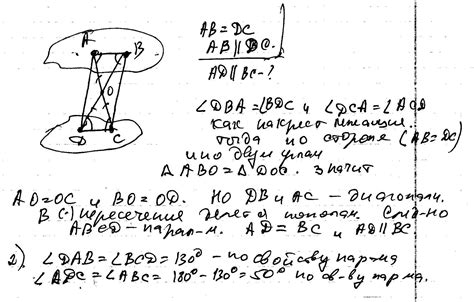 A
B
O
D
C
AB = DC
AB ∥ DC
AD ∥ BC - ?
∠DBA = ∠BDC и ∠DCA = ∠ACD
как накрест лежащие.
тогда по стороне (AB = DC)
и по двум углам
△ABO = △DOC. значит
AO = OC и BO = OD. Но DB и AC - диагонали.
В (·) пересечения делятся пополам. След-но
ABCD - парал-м. AD = BC и AD ∥ BC
2). ∠DAB = ∠BCD = 130° - по свойству пар-ма
∠ADC = ∠ABC = 180° - 130° = 50° по св-ву пар-ма.